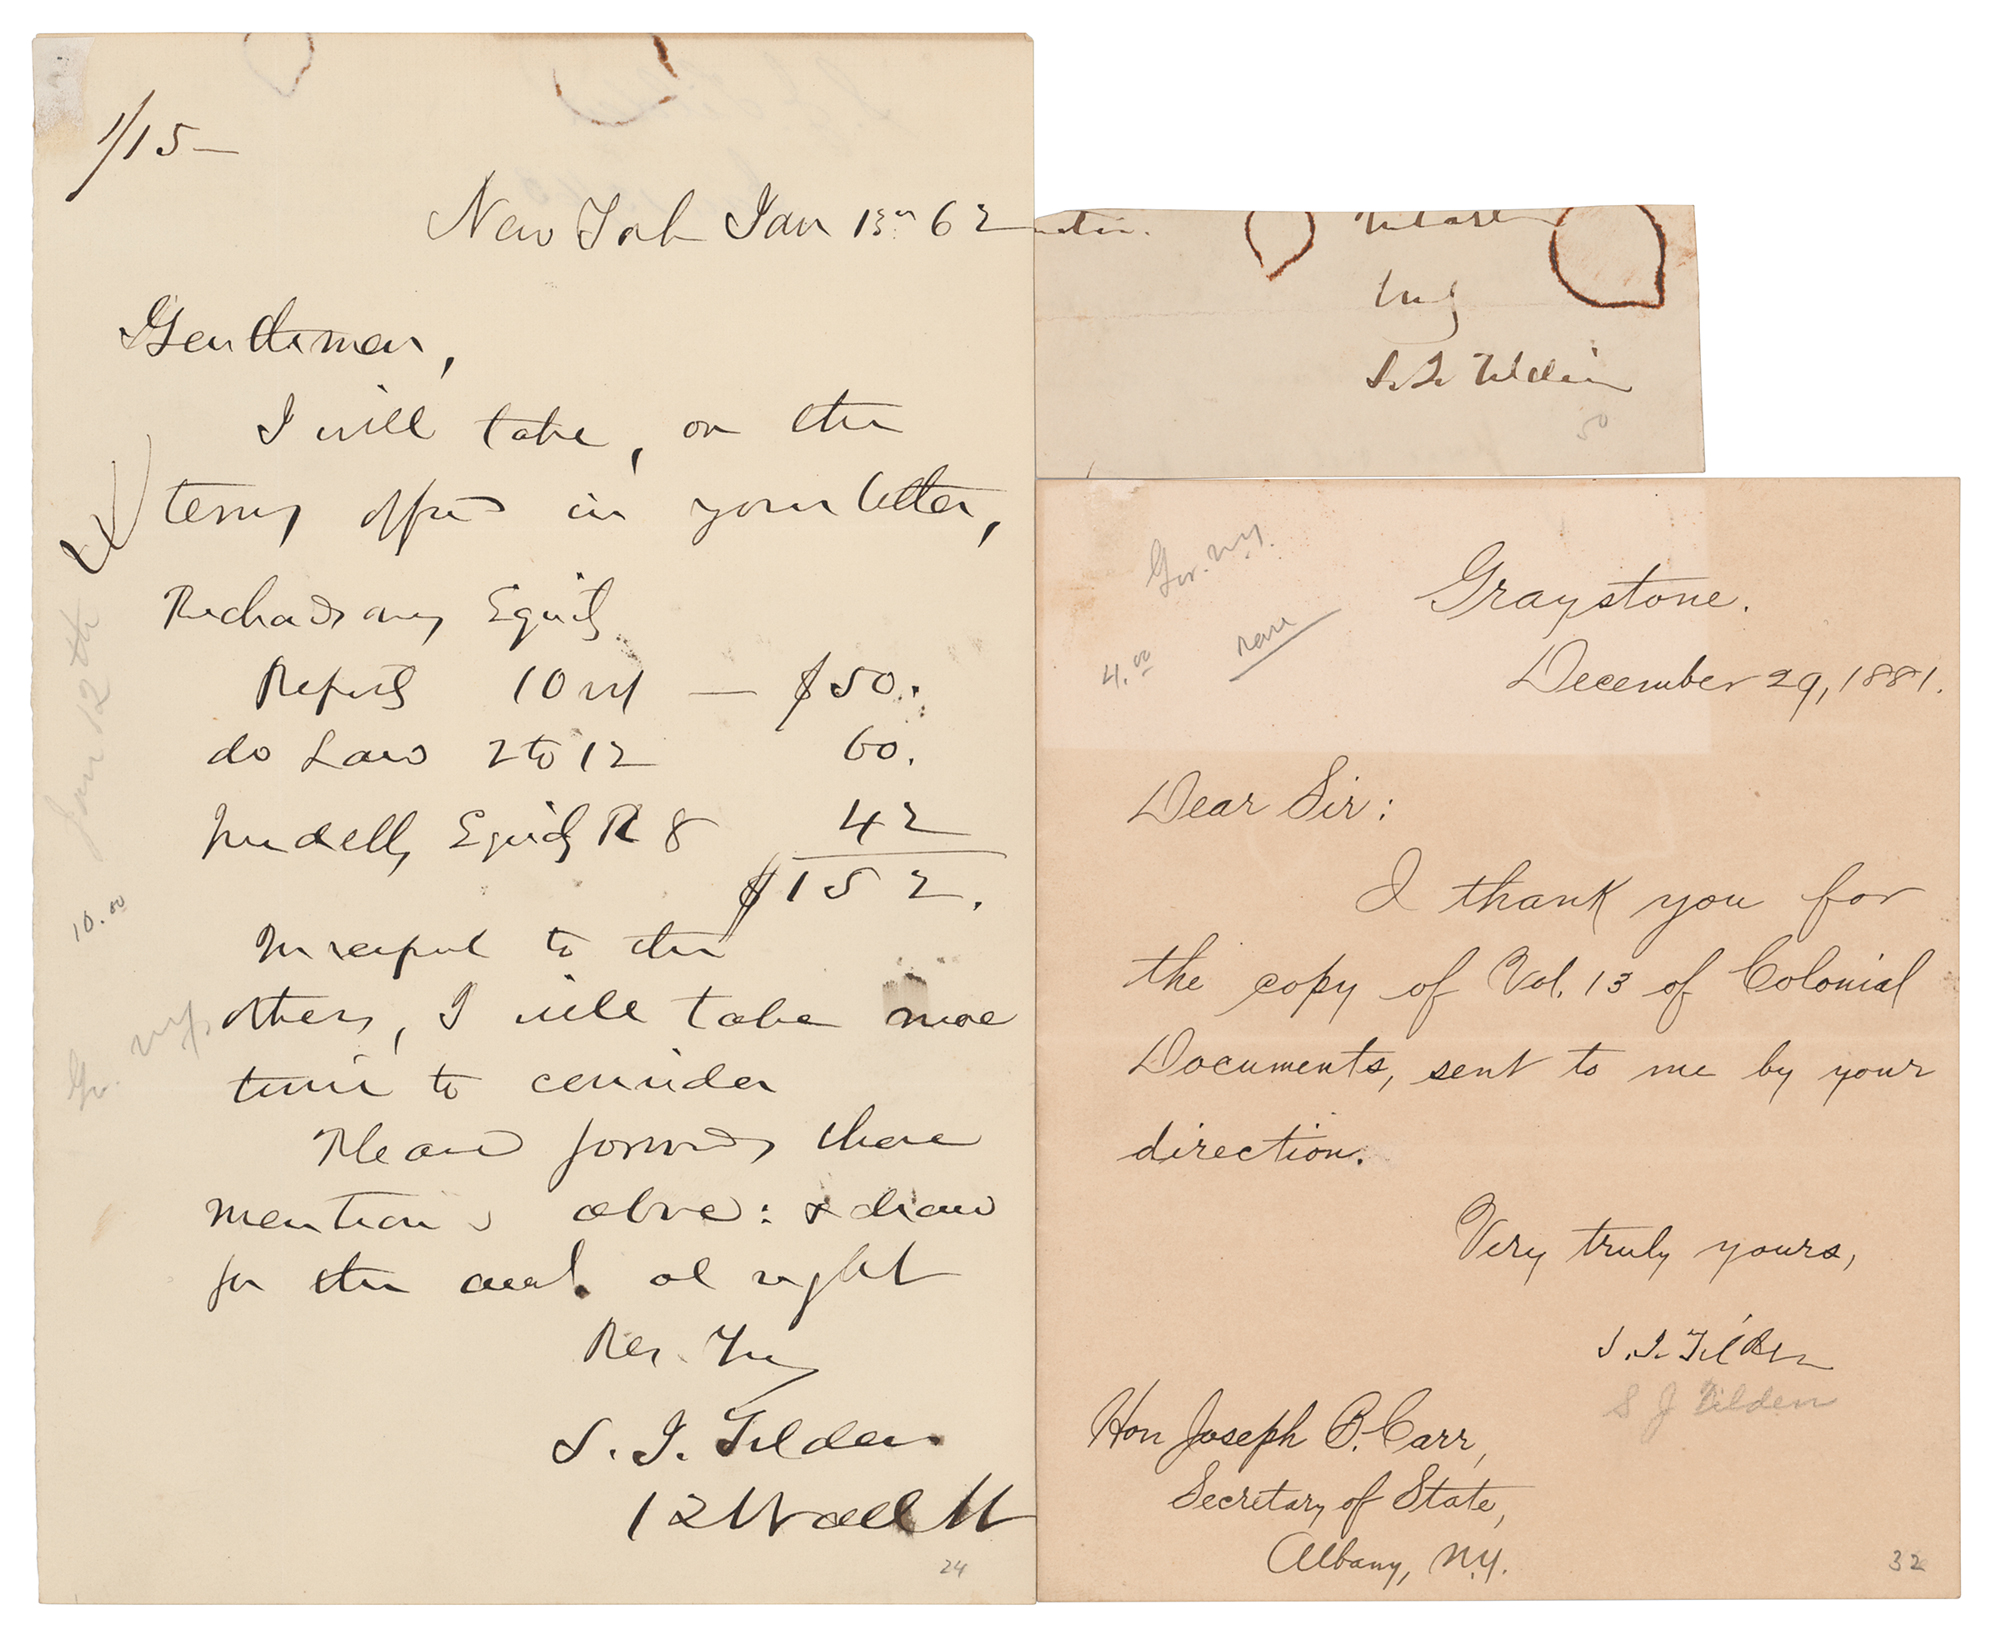 1/15—
New York Jan 13 62
Gentlemen,
I will take, on the
terms offered in your letter,
Richardsons Equity
Reports 10 vol — $50.
do Law 2 to 12 60.
Equity R 8 42
$152.
In respect to the
others, I will take more
time to consider
Please forward those
mentioned above: & draw
for the amt. at sight
Res. Try
S. J. Tilden
12 Wall St
Jan 12th
10.00
Gov. N.Y.
24
Truly
S. J. Tilden
50
Gov. N.Y.
rare
4.00
Graystone.
December 29, 1881.
Dear Sir:
I thank you for
the copy of Vol. 13 of Colonial
Documents, sent to me by your
direction.
Very truly yours,
S. J. Tilden
S J Tilden
Hon Joseph B. Carr,
Secretary of State,
Albany, N.Y.
32